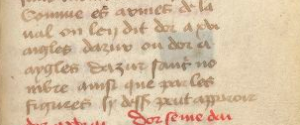 Comme es armes de la
ual on len dit dor a xvi
aigles dazur ou dor a
aygles dazur sanc no
mbre ainsi que par les
figures cy dess peut apparoir
dor seme dai